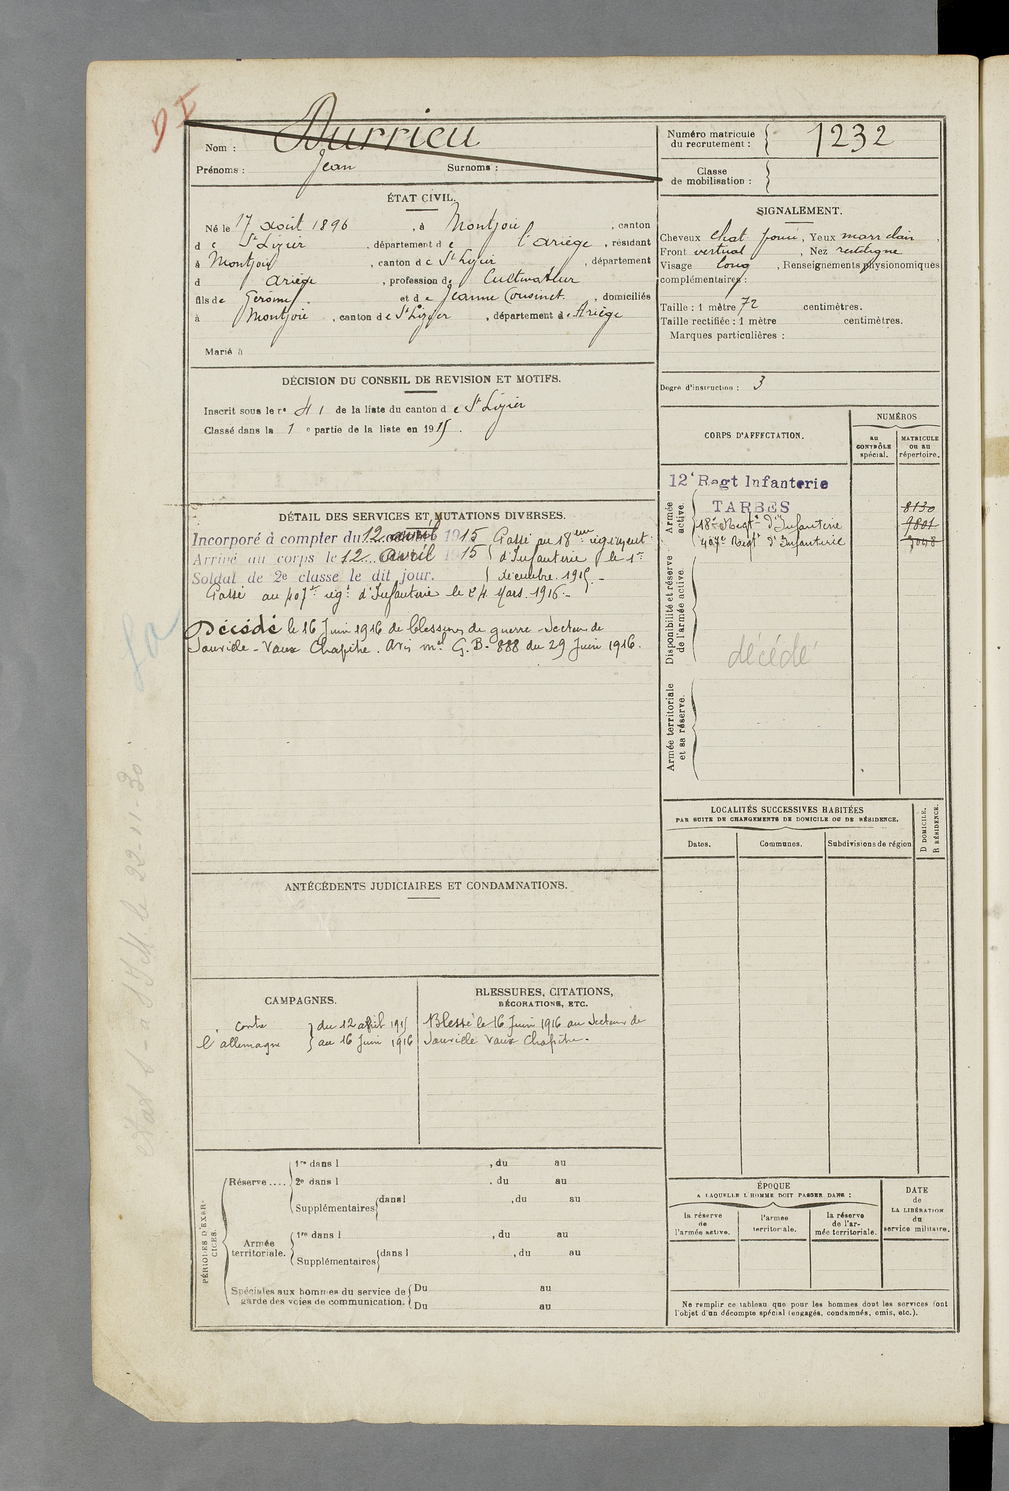 D I
Nom : Durrieu
Prénoms : Jean Surnoms :
Numéro matricule
du recrutement : 1232
Classe
de mobilisation :
ÉTAT CIVIL.
Né le 17 août 1896, à Montjoie, canton
de St Lizier, département de l'ariège, résidant
à Montjoie, canton de St Lizier, département
d ariège, profession de Cultivateur
fils de Jérôme et de Jeanne Cousinet, domiciliés
à Montjoie, canton de St Lizier, département de Ariège
Marié à
SIGNALEMENT.
Cheveux chat foncé, Yeux marr clair,
Front vertical, Nez rectiligne
Visage long, Renseignements physionomiques
complémentaires :
Taille : 1 mètre 72 centimètres.
Taille rectifiée : 1 mètre centimètres.
Marques particulières :
Degré d'instruction : 3
DÉCISION DU CONSEIL DE REVISION ET MOTIFS.
Inscrit sous le no 41 de la liste du canton de St Lizier
Classé dans la 1 e partie de la liste en 1915.
CORPS D'AFFECTATION.
NUMÉROS
au
CONTRÔLE
spécial.
MATRICULE
ou au
répertoire.
Armée
active.
12e Regt Infanterie
TARBES 8130
18me Regt d'Infanterie 9801
407e Regt d'Infanterie 7048
Disponibilité et réserve
de l'armée active.
décédé
Armée territoriale
et sa réserve.
DÉTAIL DES SERVICES ET MUTATIONS DIVERSES.
Incorporé à compter du 12 avril 1915 Passé au 18eme régiment
Arrivé au corps le 12 avril 1915 d'Infanterie le 1er
Soldat de 2e classe le dit jour. décembre 1915.-
Passé au 407me régt d'Infanterie le 24 Mars 1916.-
Décédé le 16 Juin 1916 de blessures de guerre - Secteur de
Souville - Vaux Chapitre. Avis ml G.B. 888 du 29 Juin 1916.
LOCALITÉS SUCCESSIVES HABITÉES
PAR SUITE DE CHANGEMENTS DE DOMICILE OU DE RÉSIDENCE.
Dates.
Communes.
Subdivisions de région
D DOMICILE.
R RÉSIDENCE.
ANTÉCÉDENTS JUDICIAIRES ET CONDAMNATIONS.
CAMPAGNES.
contre du 12 avril 1915
l'allemagne au 16 Juin 1916
BLESSURES, CITATIONS,
DÉCORATIONS, ETC.
Blessé le 16 Juin 1916 au Secteur de
Souville Vaux Chapitre.
PÉRIODES D'EXER-
CICES.
Réserve.... 1re dans l , du au
2e dans l , du au
Supplémentaires dans l , du au
Armée
territoriale. 1re dans l , du au
Supplémentaires dans l , du au
Spéciales aux hommes du service de Du au
garde des voies de communication. Du au
ÉPOQUE
A LAQUELLE L'HOMME DOIT PASSER DANS :
la réserve
de
l'armée active.
l'armée
territoriale.
la réserve
de l'ar-
mée territoriale.
DATE
de
LA LIBÉRATION
du
service militaire.
Ne remplir ce tableau que pour les hommes dont les services font
l'objet d'un décompte spécial (engagés, condamnés, omis, etc.).